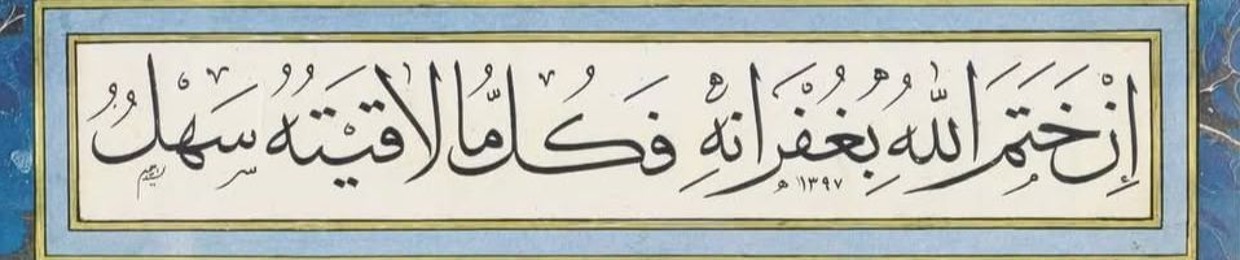 إِنْ خَتَمَ اللّٰهُ بِغُفْرَانِهِ فَكُلُّ مَا لَاقَيْتُهُ سَهْلُ
١٣٩٧ هـ